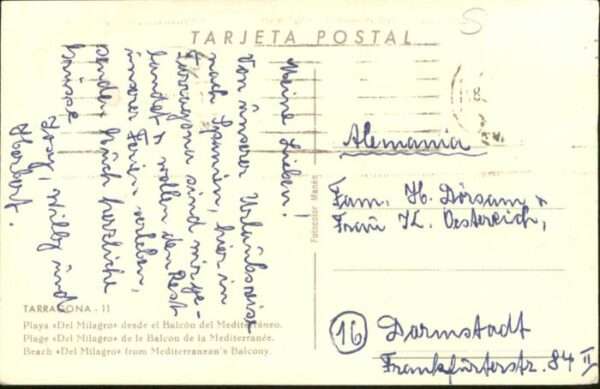 TARJETA POSTAL
Meine Lieben!
Von unserer Urlaubsreise
nach Spanien, hier in
Tarragona sind wir ge-
landet & wollen den Rest
unserer Ferien verleben,
senden Euch herzliche
Grüsse
Willy und
Herbert.
Fotocolor Manén
Alemania
Fam. H. Dörsam &
Frau K. Oestereich,
16 Darmstadt
Frankfurterstr. 84 II
TARRAGONA - 11
Playa «Del Milagro» desde el Balcón del Mediterráneo.
Plage «Del Milagro» de le Balcon de la Mediterranée.
Beach «Del Milagro» from Mediterranean's Balcony.